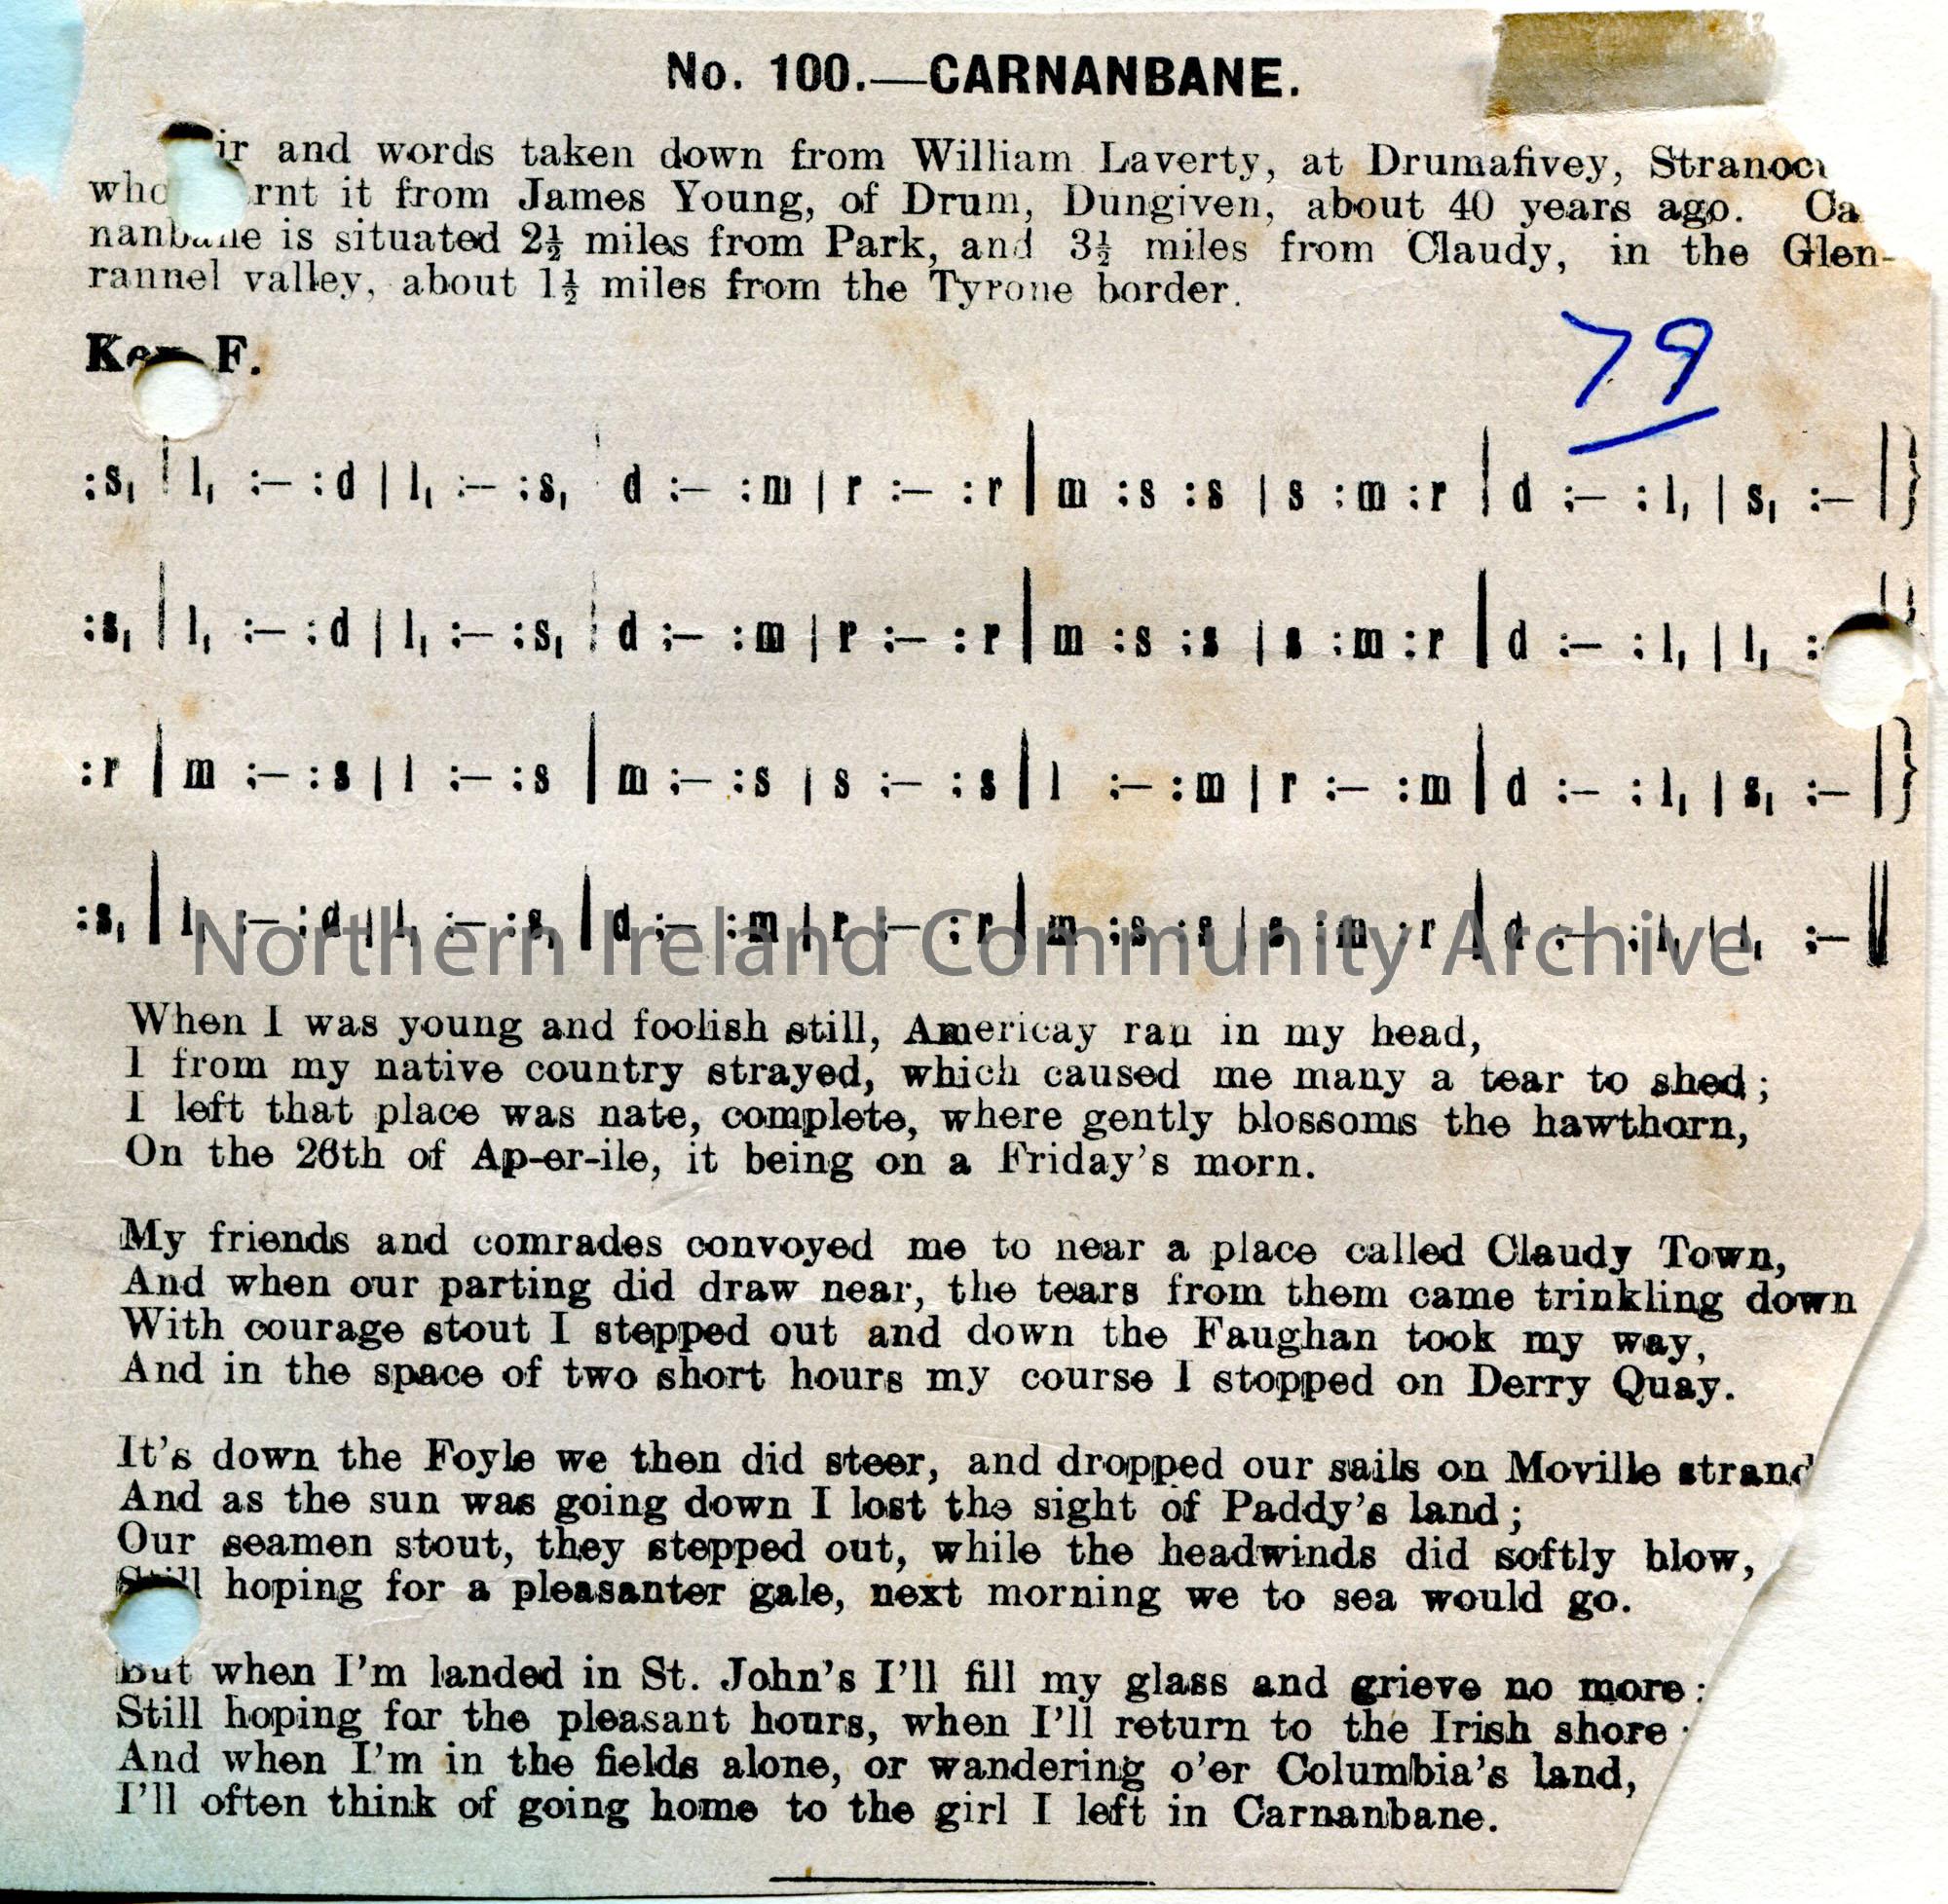 No. 100.—CARNANBANE.
and words taken down from William Laverty, at Drumafivey,
it from James Young, of Drum, Dungiven, about 40 years ago.
is situated 2½ miles from Park, and 3½ miles from Claudy, in the Glen-
rannel valley, about 1½ miles from the Tyrone border.
Key F.
79
:s, | l, :— : d | l, :— : s, | d :— : m | r :— : r | m : s : s | s : m : r | d :— : l, | s, :— | }
:s, | l, :— : d | l, :— : s, | d :— : m | r :— : r | m : s : s | s : m : r | d :— : l, | l, :
:r | m :— : s | l :— : s | m :— : s | s :— : s | l :— : m | r :— : m | d :— : l, | s, :— | }
:s, | l, :— : d | l, :— : s, | d :— : m | r :— : r | m : s : s | s : m : r | d :— : l, | l, :— ||
Northern Ireland Community Archive
When I was young and foolish still, Americay ran in my head,
I from my native country strayed, which caused me many a tear to shed;
I left that place was nate, complete, where gently blossoms the hawthorn,
On the 26th of Ap-er-ile, it being on a Friday's morn.
My friends and comrades convoyed me to near a place called Claudy Town,
And when our parting did draw near, the tears from them came trinkling down
With courage stout I stepped out and down the Faughan took my way,
And in the space of two short hours my course I stopped on Derry Quay.
It's down the Foyle we then did steer, and dropped our sails on Moville strand
And as the sun was going down I lost the sight of Paddy's land;
Our seamen stout, they stepped out, while the headwinds did softly blow,
Still hoping for a pleasanter gale, next morning we to sea would go.
But when I'm landed in St. John's I'll fill my glass and grieve no more;
Still hoping for the pleasant hours, when I'll return to the Irish shore
And when I'm in the fields alone, or wandering o'er Columbia's land,
I'll often think of going home to the girl I left in Carnanbane.